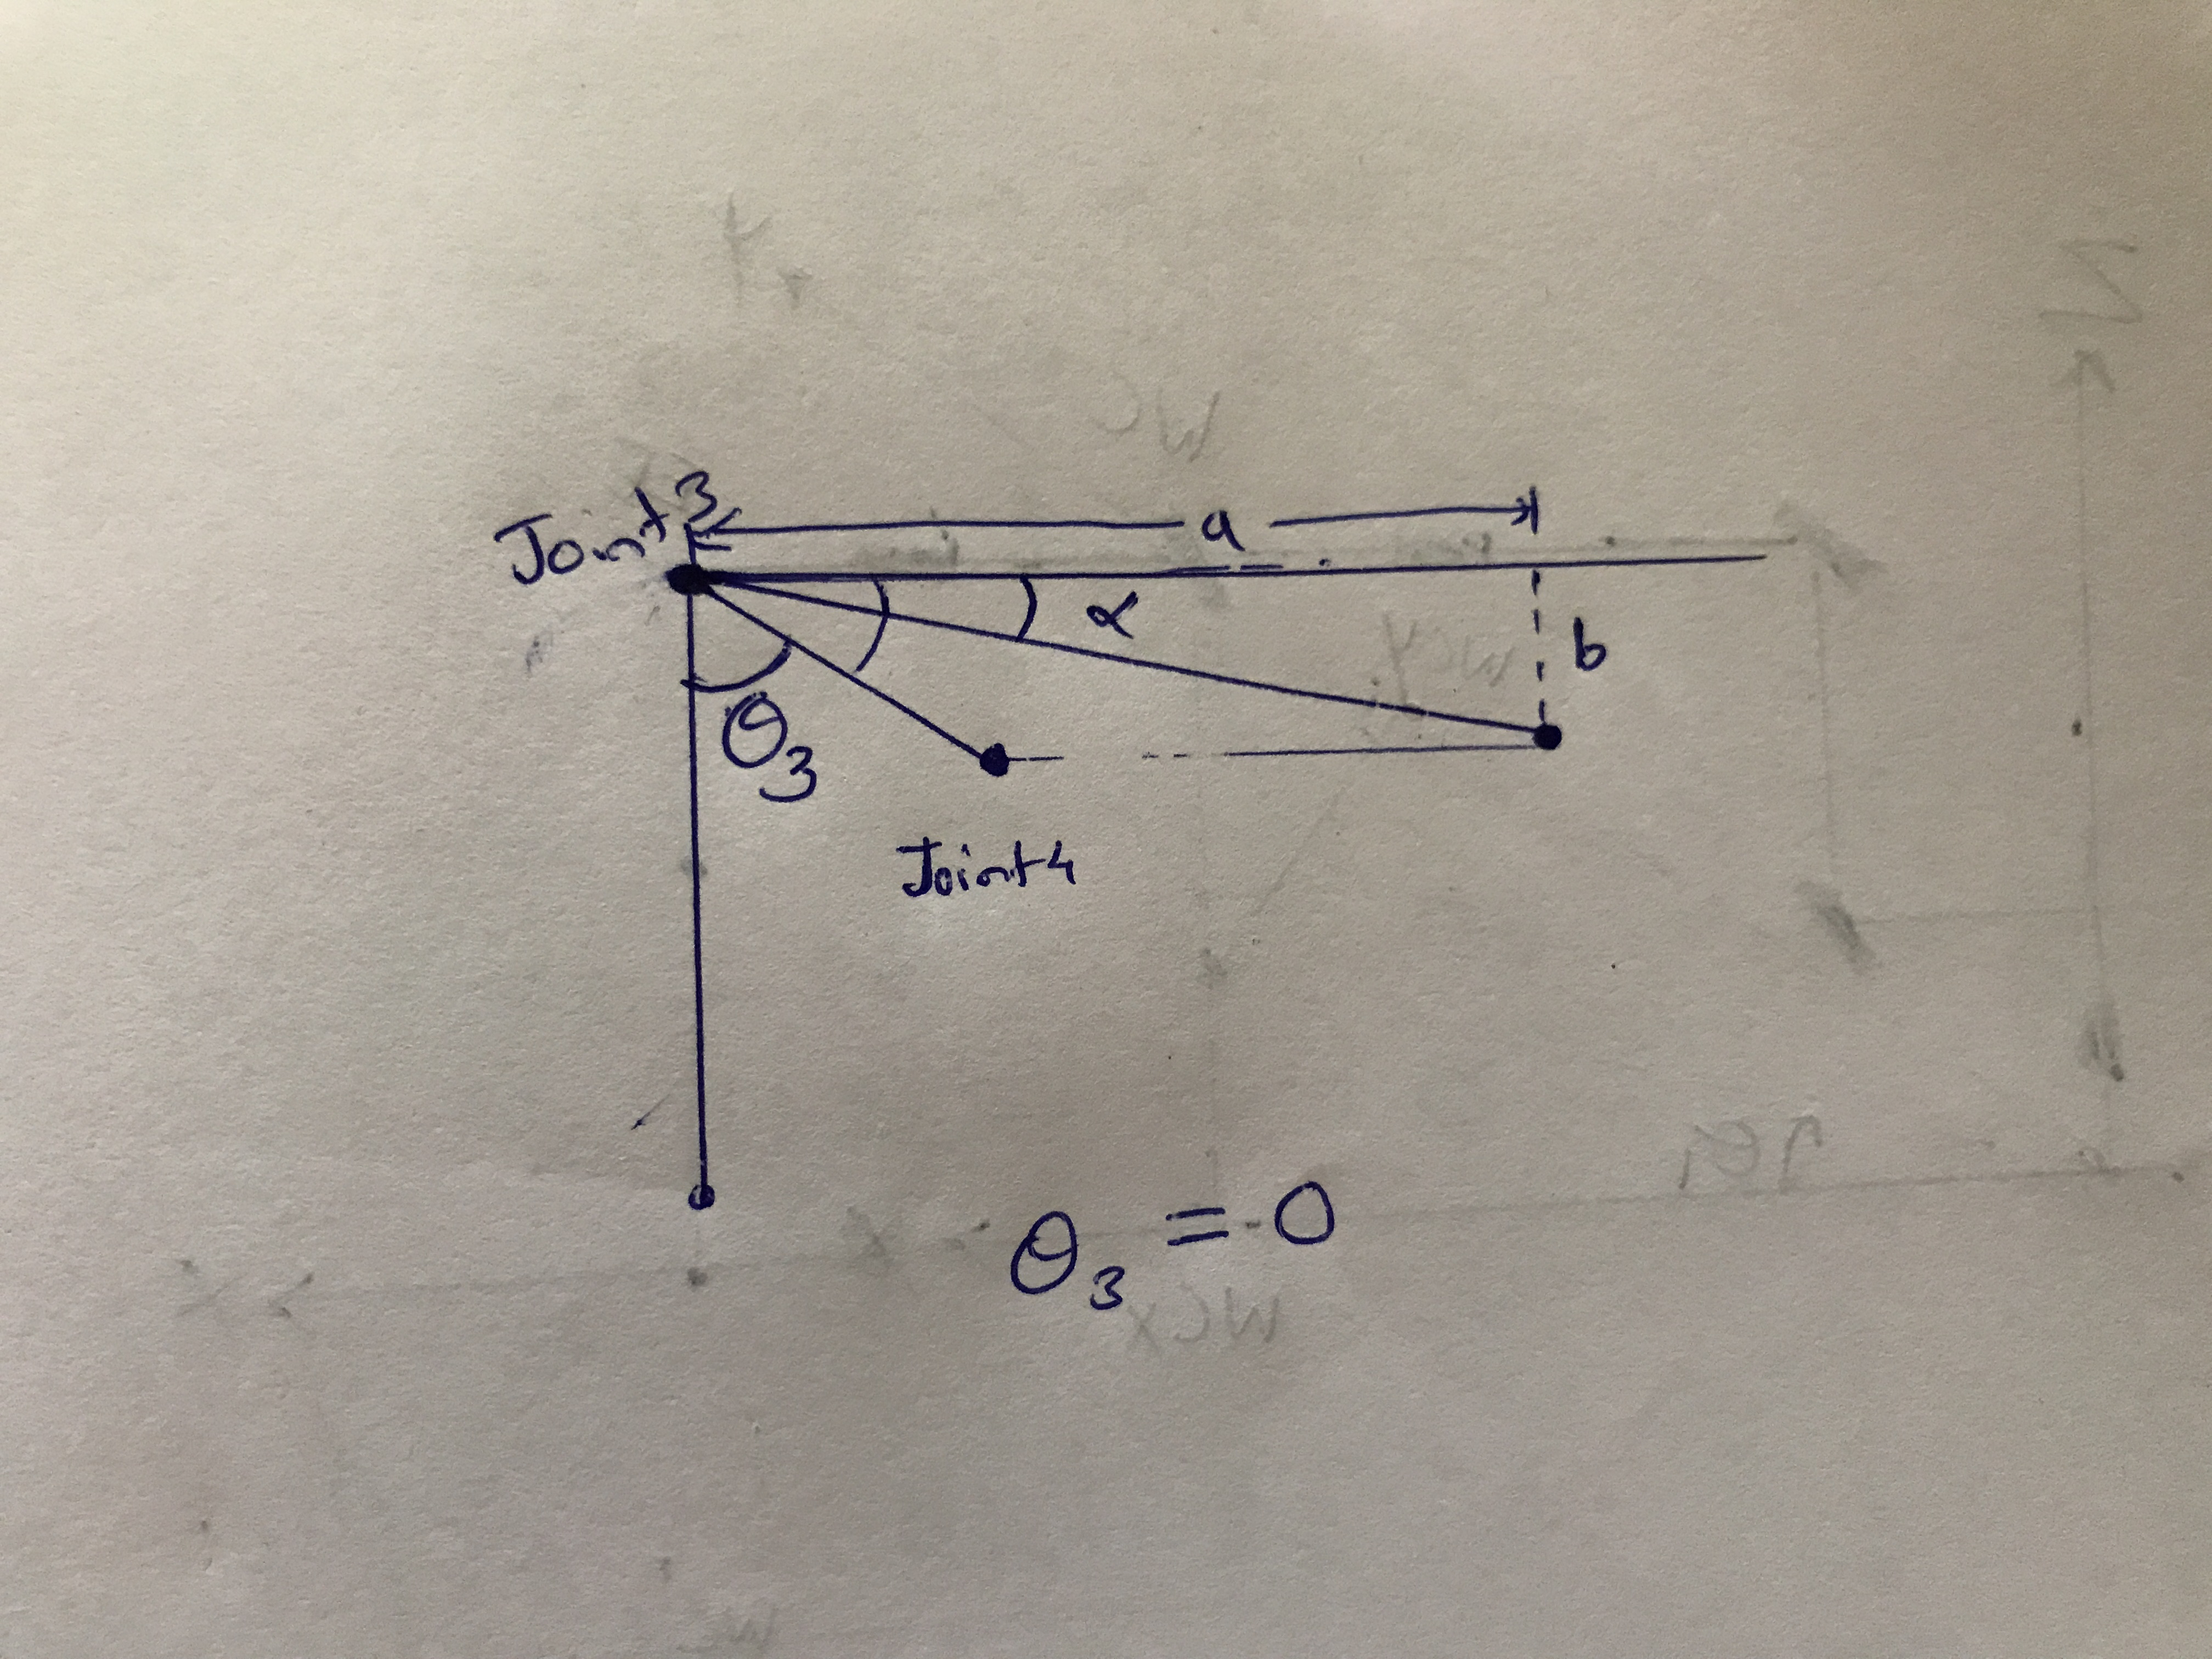 Joint 3
a
α
b
θ3
Joint 4
θ3 = 0